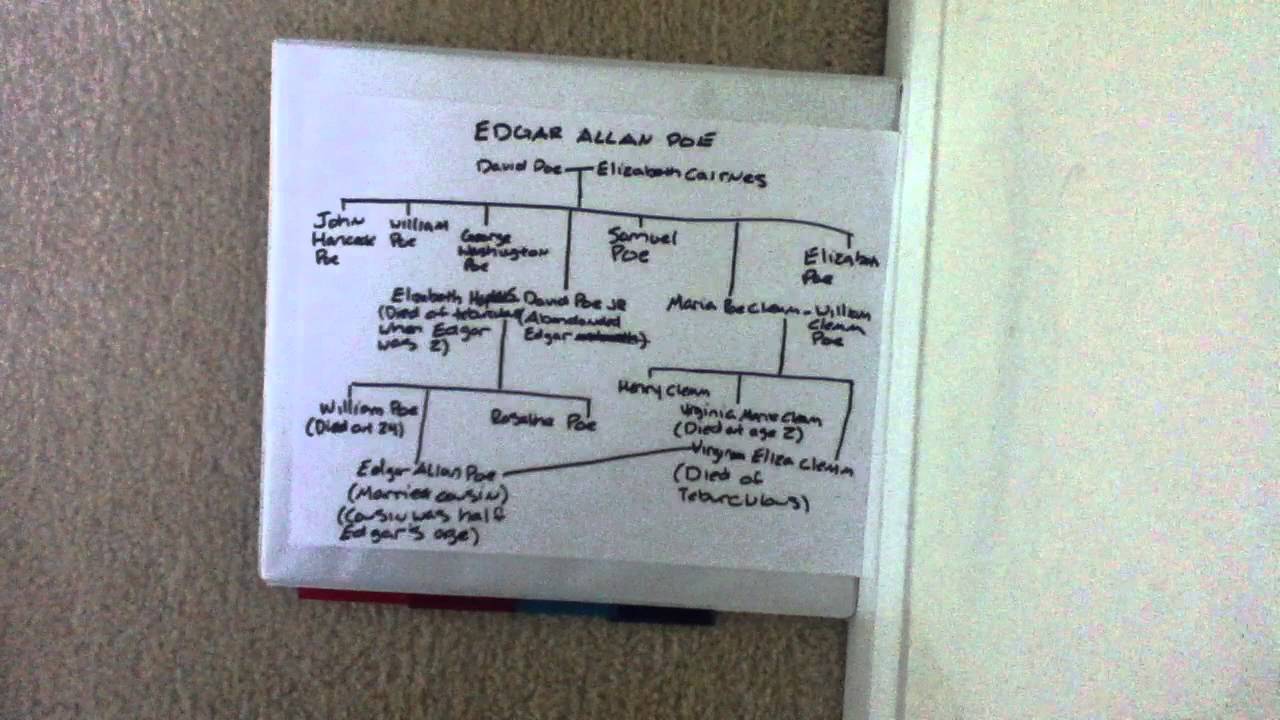 EDGAR ALLAN POE
David Poe — Elizabeth Cairnes
John
Hancock
Poe
William
Poe
George
Washington
Poe
Samuel
Poe
Elizabeth
Poe
Elizabeth
(Died of
when Edgar
was 2)
David Poe JR
(Abandonded
Edgar)
Maria Poe Clemm - William
Clemm
Poe
William Poe
(Died at 24)
Rosaline Poe
Henry Clemm
Virginia Marie Clemm
(Died at age 2)
Edgar Allan Poe
(Married cousin)
(Cousin was half
Edgar's age)
Virginia Eliza Clemm
(Died of
Teburculous)